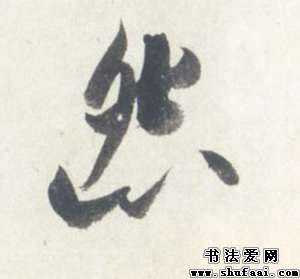 然
书法爱网
www.shufaai.com